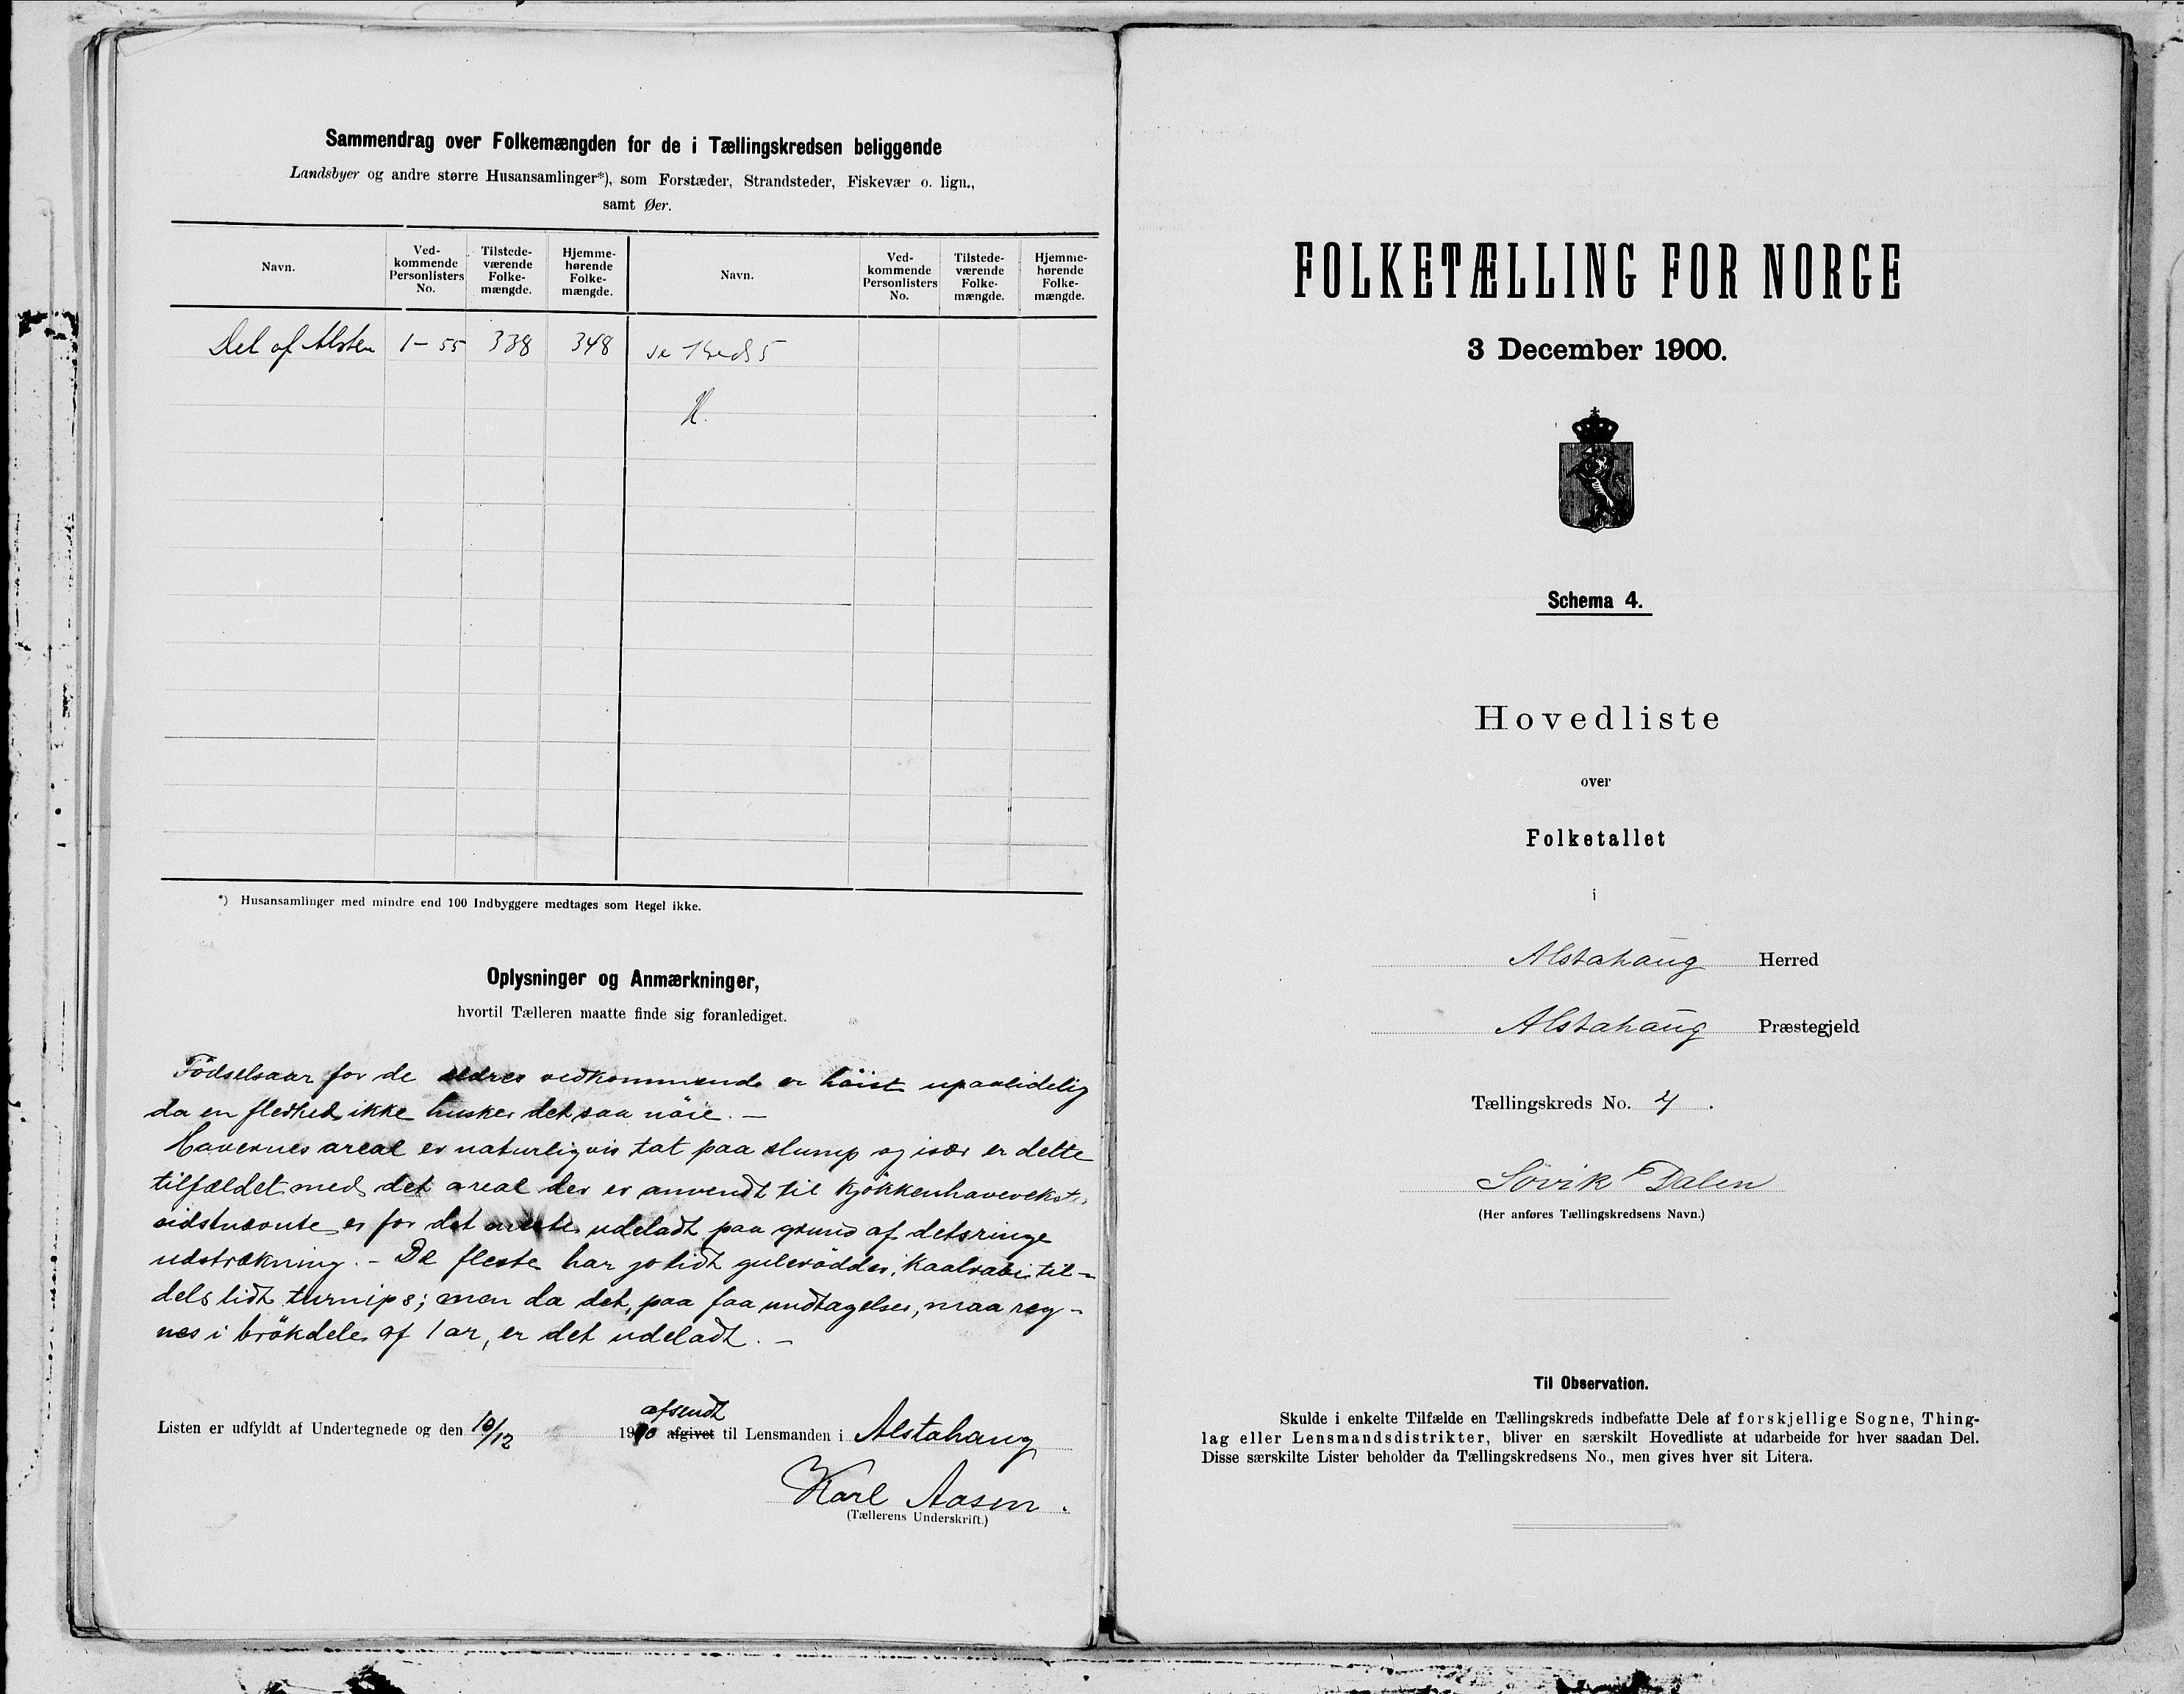 Sammendrag over Folkemængden for de i Tællingskredsen beliggende
Landsbyer og andre større Husansamlinger*), som Forstæder, Strandsteder, Fiskevær o. lign.,
samt Øer.
Navn. Ved-kommende Personlisters No. Tilstede-værende Folke-mængde. Hjemme-hørende Folke-mængde. Navn. Ved-kommende Personlisters No. Tilstede-værende Folke-mængde. Hjemme-hørende Folke-mængde.
Del af Alsten 1-55 338 348 se Kreds 5
*) Husansamlinger med mindre end 100 Indbyggere medtages som Regel ikke.
Oplysninger og Anmærkninger,
hvortil Tælleren maatte finde sig foranlediget.
Fødselsaar for de ældres vedkommende er höist upaalidelig
da en flerhed ikke husker det saa nöie. —
Havernes areal er naturligvis tat paa slump og især er dette
tilfældet med det areal der er anvendt til kjøkkenhavevekster
sidstnævnte er for det meste udeladt paa grund af dets ringe
udstrækning. - De fleste har jo lidt gulerödder, kaalrabi til-
dels lidt turnips; men da det, paa faa undtagelser, maa reg-
nes i brökdele af 1 ar, er det udeladt. —
afsendt
Listen er udfyldt af Undertegnede og den 10/12 1900 afgivet til Lensmanden i Alstahaug
Karl Aasen.
(Tællerens Underskrift.)
FOLKETÆLLING FOR NORGE
3 December 1900.
Schema 4.
Hovedliste
over
Folketallet
i
Alstahaug Herred
Alstahaug Præstegjeld
Tællingskreds No. 4.
Søvik Dalen
(Her anføres Tællingskredsens Navn.)
Til Observation.
Skulde i enkelte Tilfælde en Tællingskreds indbefatte Dele af forskjellige Sogne, Thing-
lag eller Lensmandsdistrikter, bliver en særskilt Hovedliste at udarbeide for hver saadan Del.
Disse særskilte Lister beholder da Tællingskredsens No., men gives hver sit Litera.